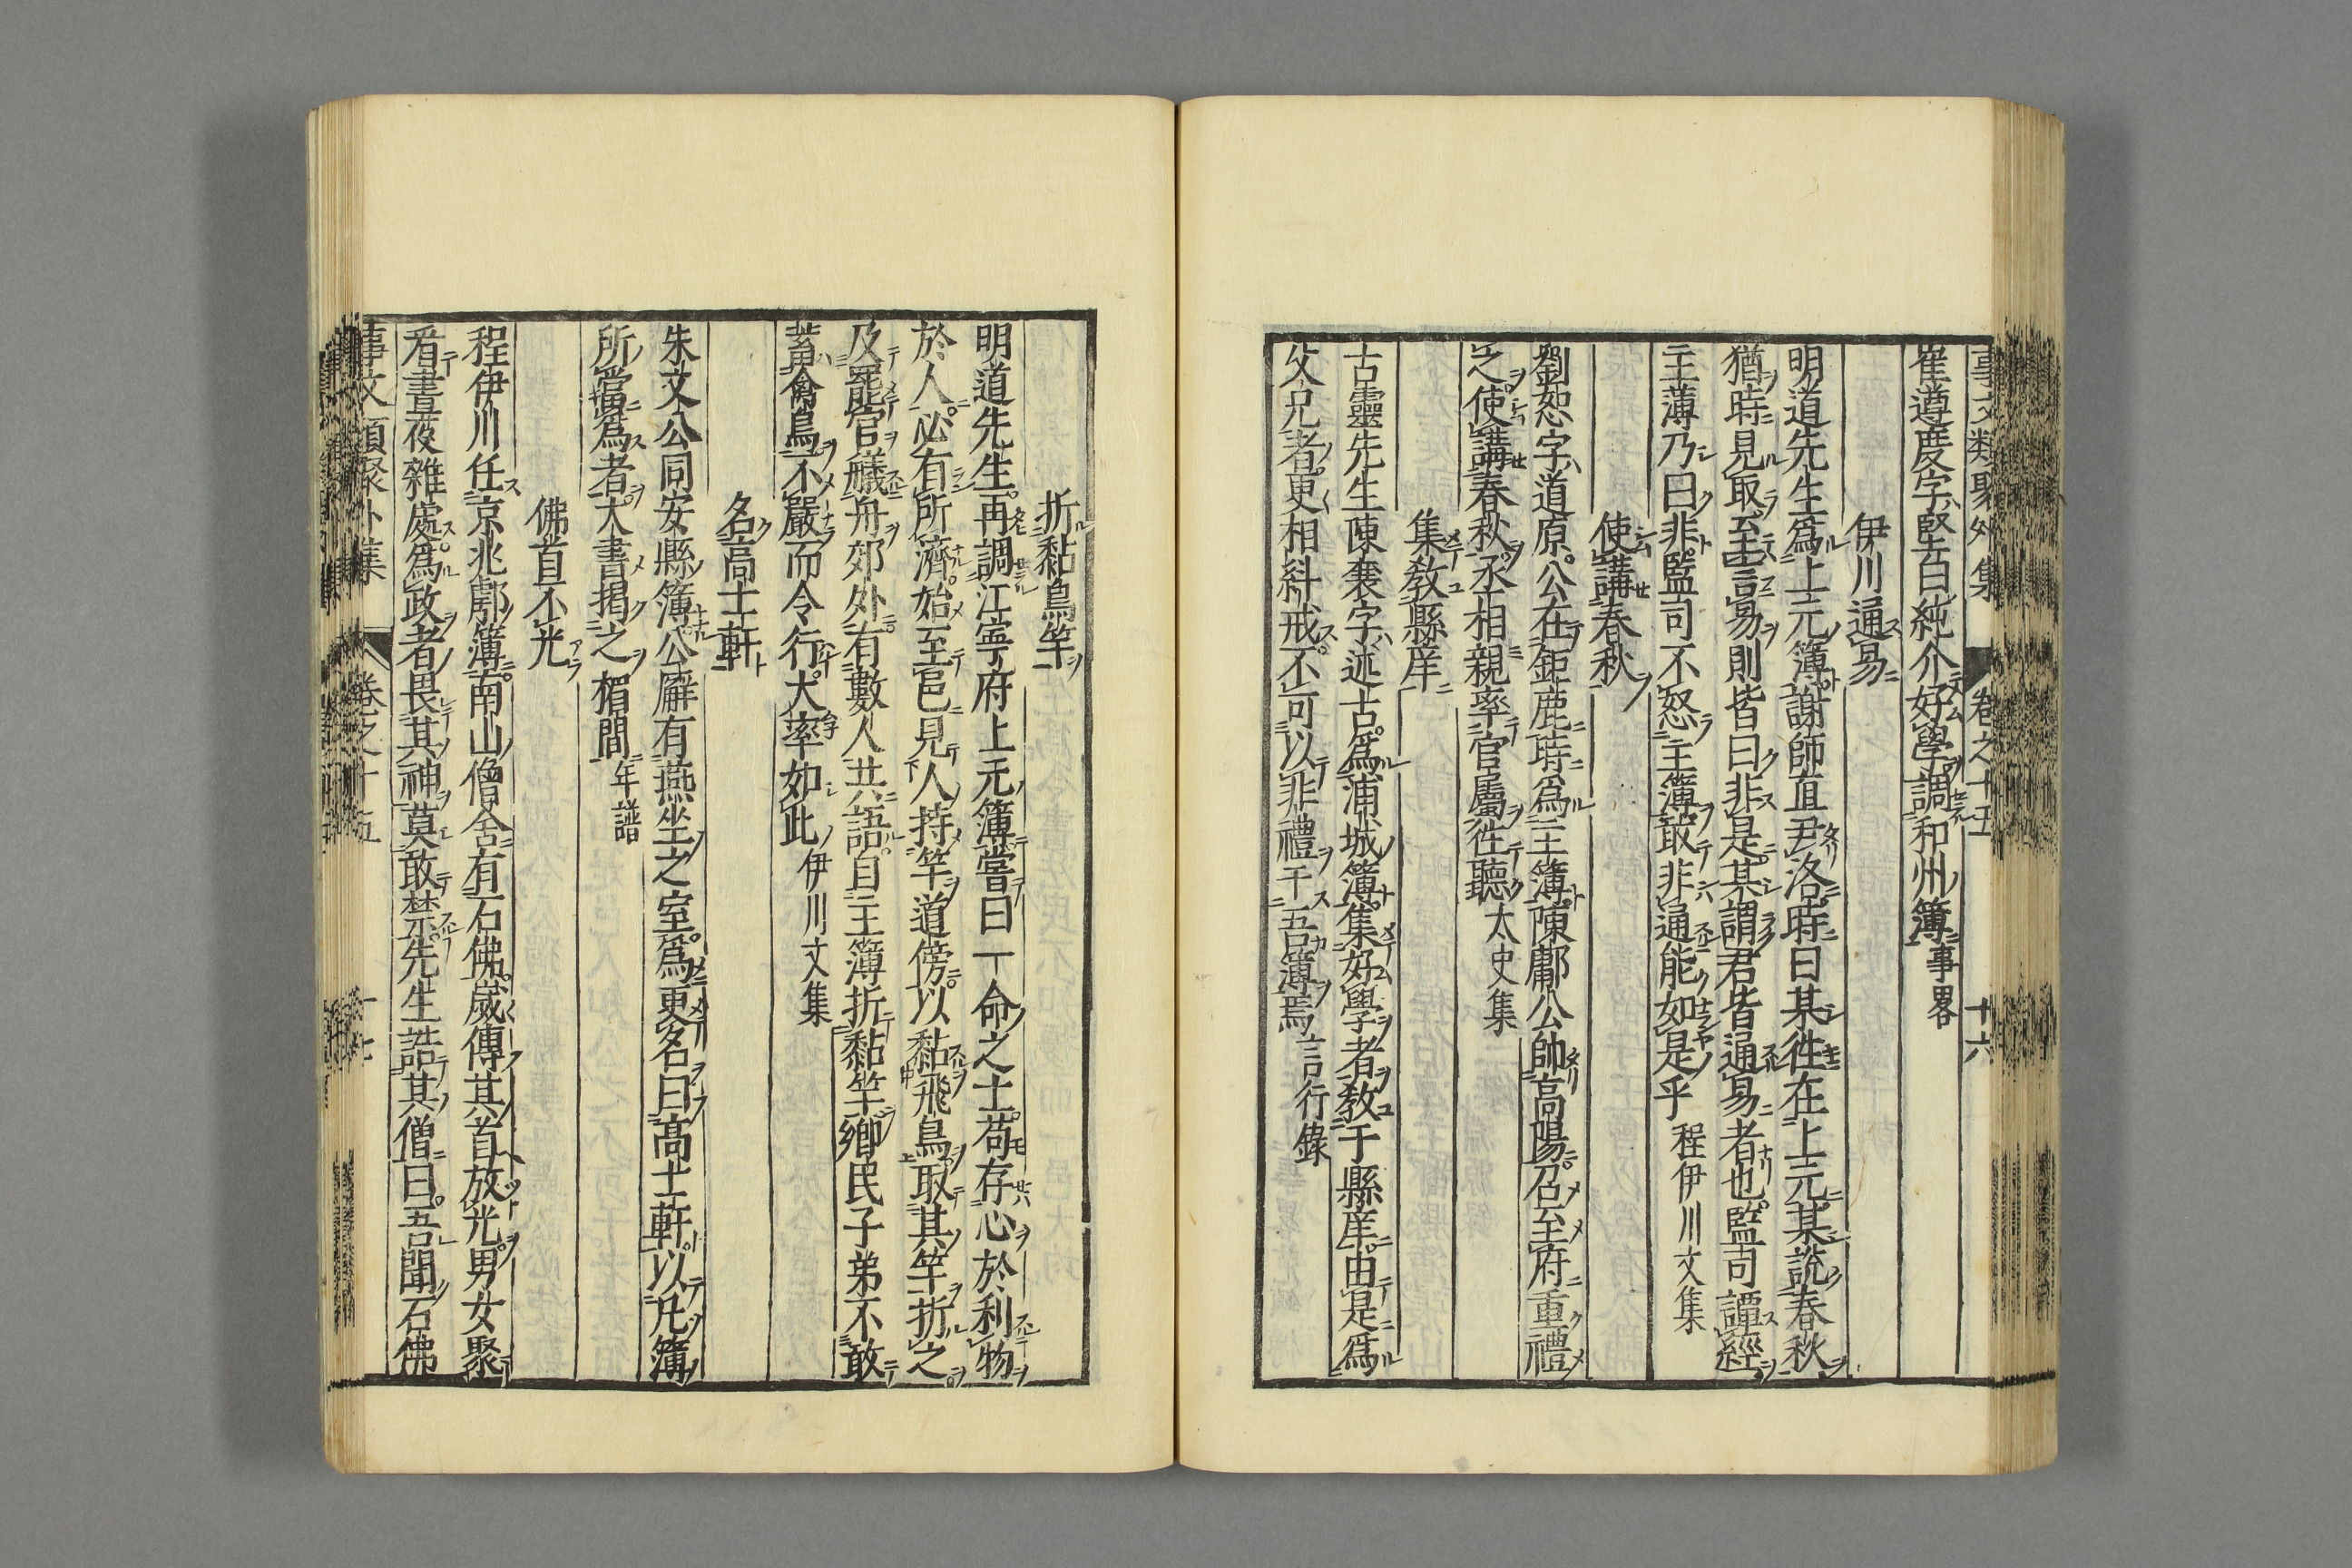 事文類聚外集 卷之十五 十六
崔遵度字堅白純介好學調和州簿事畧
伊川通易
明道先生爲上元簿謝師直尹洛時曰某徃在上元某說春秋
猶時見取至言易則皆曰非是某謂君皆通易者也監司譚經
主薄乃曰非監司不怒主簿敢非通能如是乎程伊川文集
使講春秋
劉恕字道原公在鉅鹿時爲主簿陳鄘公帥高陽召至府重禮
之使講春秋丞相親率官屬徃聽太史集
集教縣庠
古靈先生陳襄字述古爲浦城簿集好學者教于縣庠由是爲
父兄者更相糾戒不可以非禮干吾簿焉言行錄
折黏鳥竿
明道先生再調江寧府上元簿嘗曰一命之士苟存心於利物
於人必有所濟始至邑見人持竿道傍以黏飛鳥取其竿折之
及罷官艤舟郊外有數人共語自主簿折黏竿鄉民子弟不敢
蓄禽鳥不嚴而令行大率如此伊川文集
名高士軒
朱文公同安縣簿公廨有燕坐之室爲更名曰高士軒以凡簿
所當爲者大書揭之楣間年譜
佛首不光
程伊川任京兆鄠簿南山僧舍有石佛歲傳其首放光男女聚
看晝夜雜處爲政者畏其神莫敢禁先生詰其僧曰吾聞石佛
事文類聚外集 卷之十五 十七